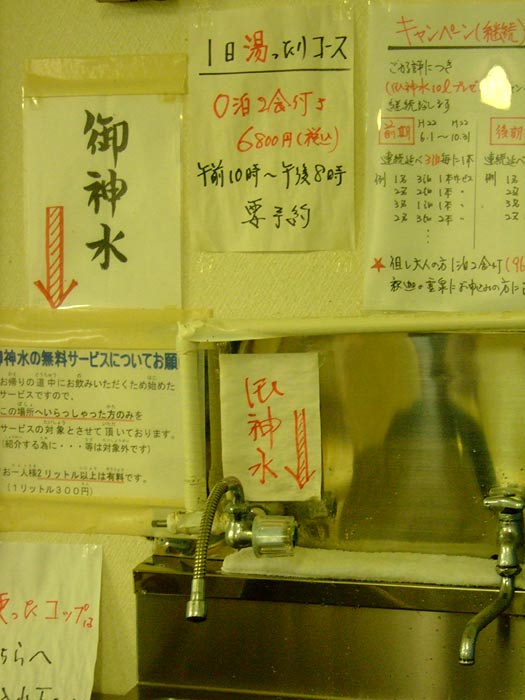 御神水
1日湯ったりコース
0泊2食付き
6800円(税込)
午前10時～午後8時
要予約
キャンペーン(継続)
ご好評につき
継続致します
前期
H22 H22
6.1～10.31
後期
連続延べ3泊毎に1本
例 1名 3泊 1本サービス
2名 2泊 1本 〃
3名 1泊 1本 〃
2名 3泊 2本 〃
★但し大人の方1泊2食付
御神水の無料サービスについてお願
お帰りの道中にお飲みいただくため始めた
サービスですので、
この場所へいらっしゃった方のみを
サービスの対象とさせて頂いております。
(紹介する為に・・・等は対象外です)
お一人様2リットル以上は有料です。
(1リットル300円)
御神水
使ったコップは
ちらへ